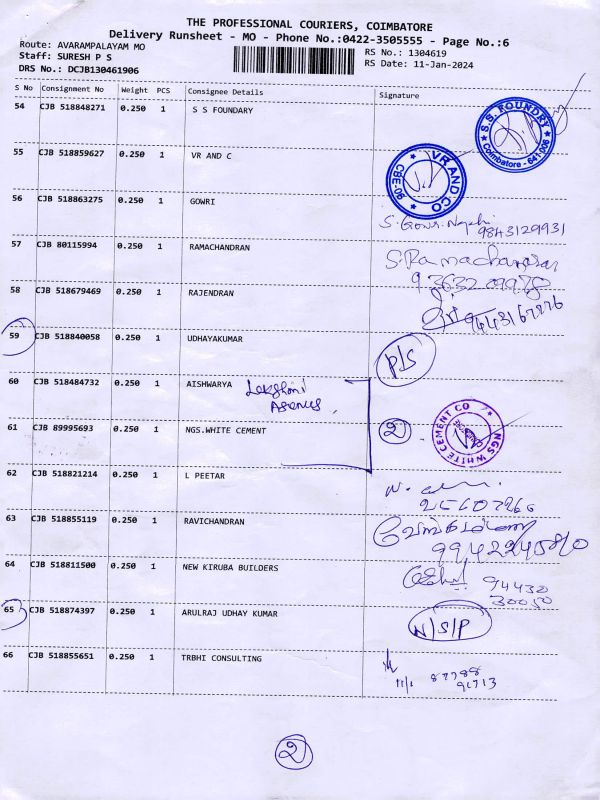 THE PROFESSIONAL COURIERS, COIMBATORE
Delivery Runsheet - MO - Phone No.:0422-3505555 - Page No.:6
Route: AVARAMPALAYAM MO
Staff: SURESH P S
DRS No.: DCJB130461906
RS No.: 1304619
RS Date: 11-Jan-2024
S No Consignment No Weight PCS Consignee Details Signature
54 CJB 518848271 0.250 1 S S FOUNDARY
S.S. FOUNDRY
Coimbatore - 641 006
55 CJB 518859627 0.250 1 VR AND C
VR AND CO
CBE-90
56 CJB 518863275 0.250 1 GOWRI
9843129931
57 CJB 80115994 0.250 1 RAMACHANDRAN
S.Ramachandran
58 CJB 518679469 0.250 1 RAJENDRAN
59 CJB 518840058 0.250 1 UDHAYAKUMAR
P/S
60 CJB 518484732 0.250 1 AISHWARYA Lakshmi
61 CJB 89995693 0.250 1 NGS.WHITE CEMENT
2
NGS WHITE CEMENT CO
62 CJB 518821214 0.250 1 L PEETAR
63 CJB 518855119 0.250 1 RAVICHANDRAN
64 CJB 518811500 0.250 1 NEW KIRUBA BUILDERS
94430
30050
65 CJB 518874397 0.250 1 ARULRAJ UDHAY KUMAR
N/S/P
66 CJB 518855651 0.250 1 TRBHI CONSULTING
11/1 87788
91713
2